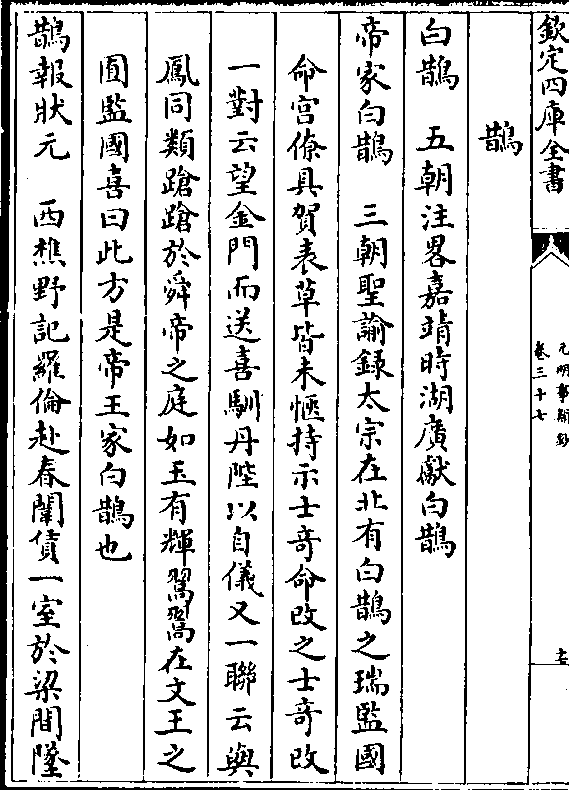 欽定四庫全書
元明事類鈔
卷三十七
鵲
白鵲　五朝注畧嘉靖時湖廣獻白鵲
帝家白鵲　三朝聖諭録太宗在北有白鵲之瑞監國
命宫僚具賀表草皆未愜持示士竒命改之士竒改
一對云望金門而送喜馴丹陛以自儀又一聯云與
鳳同類蹌蹌於舜帝之庭如玉有輝翯翯在文王之
囿監國喜曰此方是帝王家白鵲也
鵲報狀元　西樵野記羅倫赴春闈僨一室於梁間墜